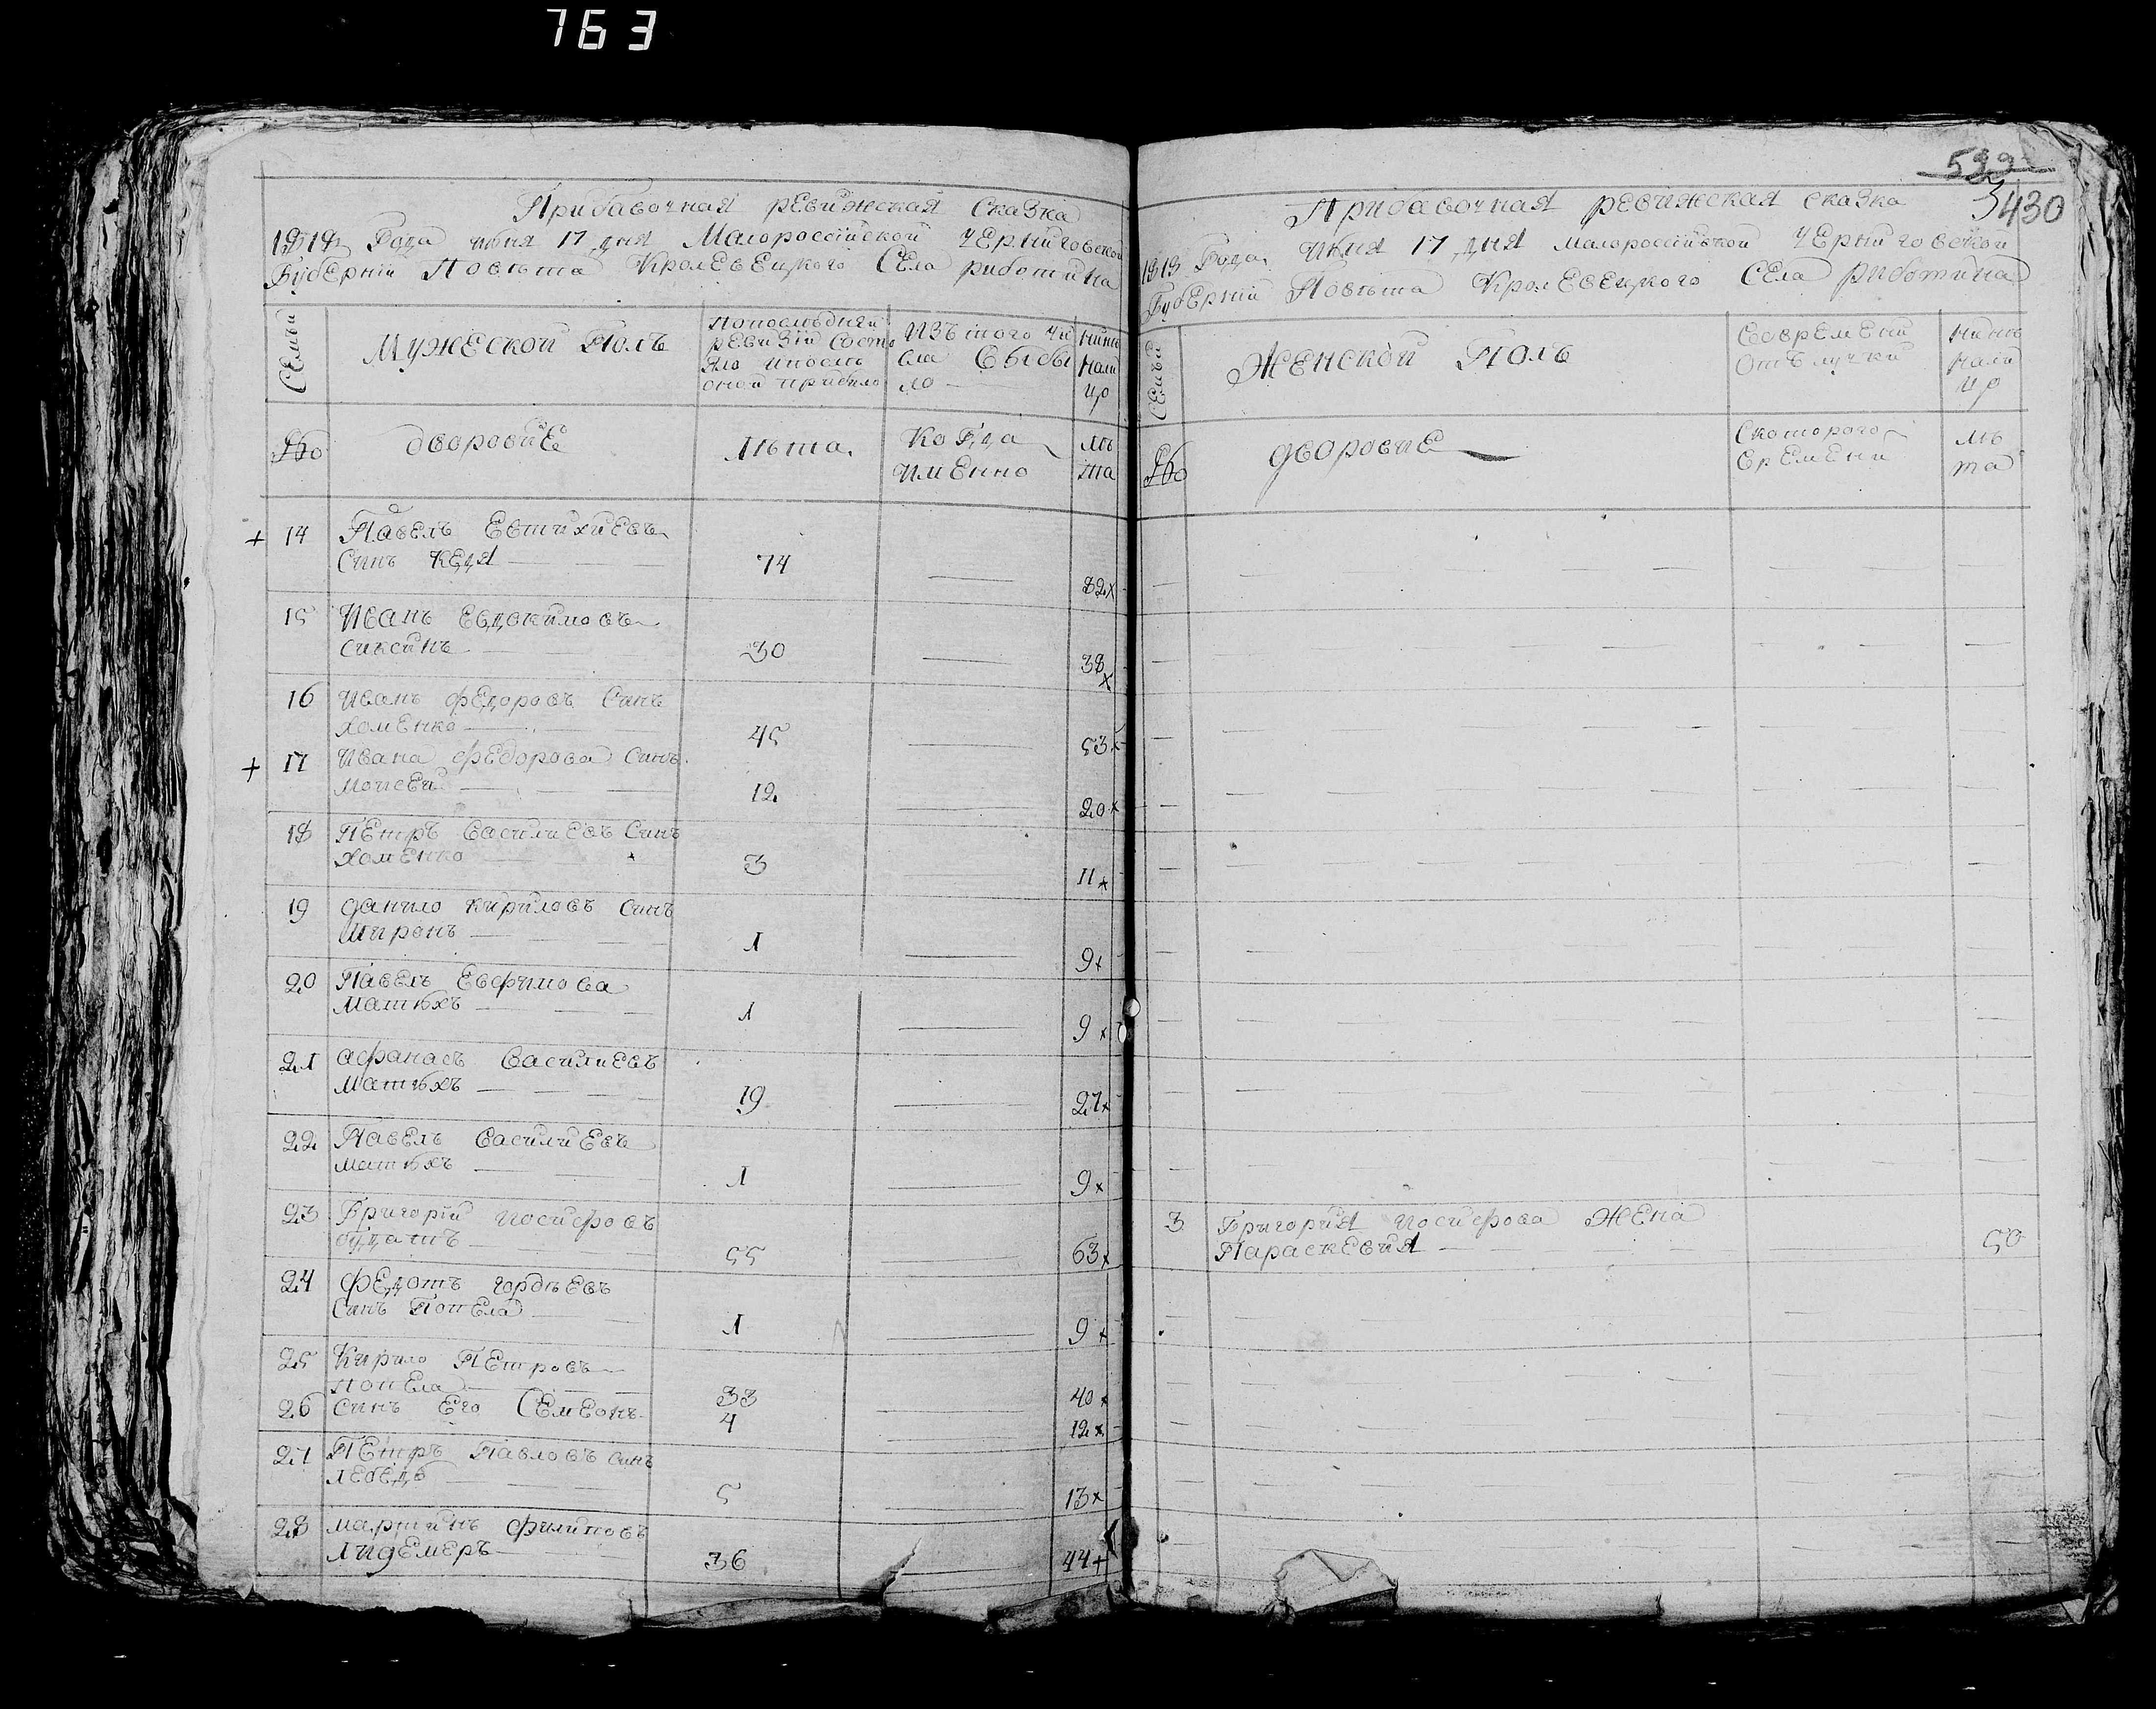 763
Прибавочная ревижская сказка
1818 Года июня 17 дня Малороссійской Черниговской
Губерній Повъта Кролевецкого Села риботина
Семъи
Мужеской Полъ
попослъдней
ревизіи состо
яло ипослъ
оной прибило
Изътого чи
сла Свыбы
ло
нинъ
нали
цо
№
дворовиЕ
лъта
Когда
именно
лъ
та
+ 14 Павелъ Евтихиевъ
Синъ КЕдя 74 82 x
15 Иванъ Евдокимовъ
сиксинъ 30 38 x
16 Иванъ федоровъ Синъ
хоменко 45 53 x
+ 17 Ивана федорова Синъ
Мочсей 12 20 x
18 ПЕтръ Василиевъ Синъ
хоменко 3 11 x
19 данило кириловъ Синъ
Миронъ 1 9 x
20 Павелъ Евфимова
Матюхъ 1 9 x
21 афанасъ Василиевъ
Матюхъ 19 27 x
22 Павелъ Василиевъ
матюхъ 1 9 x
23 Григорій иосифовъ
55 63 x
24 ФЕдотъ гордъевъ
Синъ ПопЕла 1 9 x
25 Кирило ПЕтровъ
попЕла 33 40 x
26 Синъ Его СЕмЕонъ 4 12 x
27 ПЕтръ Павловъ синъ
лебЕдь 5 13 x
28 мартинъ филиповъ
лидЕмЕръ 36 44 +
522
3430
Прибавочная ревижская сказка
1818 Года Июня 17 дня малороссійской Черниговской
Губерній Повъта Кролевецкого Села риботина
Семъи
Женской Полъ
Соврeмени
отълучки
нинъ
нали
цо
№
дворовиЕ
Скоторого
времени
лъ
та
3 Григория иосифова жЕна
Параскевия 50